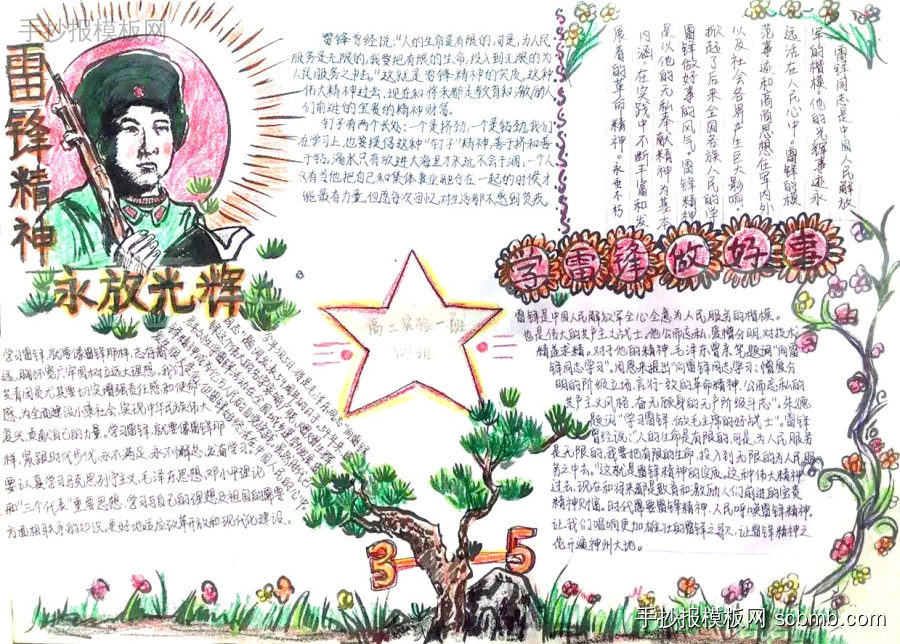 手抄报模板网
雷锋精神
永放光辉
雷锋曾经说:“人的生命是有限的,可是,为人民
服务是无限的,我要把有限的生命,投入到无限的为
人民服务之中去。”这就是雷锋精神的实质。这种
伟大精神过去、现在和将来都是教育和激励人
们前进的宝贵的精神财富。
钉子有两个长处:一个是挤劲,一个是钻劲。我们
在学习上,也要提倡这种“钉子”精神,善于挤和善
于钻。滴水只有放进大海里才永远不会干涸,一个人
只有当他把自己和集体事业融合在一起的时候才
能最有力量。但愿每次回忆,对生活都不感到负疚
雷锋同志是中国人民解放
军的楷模,他的光辉事迹永
远活在人民心中。雷锋的模
范事迹和高尚思想在军内外
以及社会各界产生巨大影响,
掀起了后来全国各族人民的学
雷锋做好事的风气,雷锋精神
是以他的无私奉献精神为基本
内涵,在实践中不断丰富和发
展着的革命精神。永垂不朽
学雷锋做好事
雷锋是中国人民解放军全心全意为人民服务的楷模。
也是伟大的共产主义战士,他公而忘私,爱憎分明,对技术
精益求精。对于他的精神,毛泽东曾亲笔题词“向雷
锋同志学习”。周恩来提出“向雷锋同志学习:憎爱分
明的阶级立场,言行一致的革命精神,公而忘私的
共产主义风格,奋不顾身的无产阶级斗志”。朱德
题词“学习雷锋,做毛主席的好战士”。雷锋
曾经说:“人的生命是有限的,可是,为人民服务
是无限的,我要把有限的生命,投入到无限的为人民服
务之中去。”这就是雷锋精神的实质。这种伟大精神
过去、现在和将来都是教育和激励人们前进的宝贵
精神财富。时代需要雷锋精神,人民呼唤雷锋精神。
让我们唱响更加雄壮的雷锋之歌,让雷锋精神之
花开遍神州大地。
高二实验一班
学习雷锋,就要像雷锋那样,志存高
远,胸怀
感,为全面建设小康社会,实现中华民族伟大
复兴,贡献自己的力量。学习雷锋,就要像雷锋那
样,紧跟时代步伐,永不满足,永不懈怠,
要认真学习马克思列宁主义、毛泽东思想、邓小平理论
和“三个代表”重要思想,学习与自己的理想及祖国的需要
方面相联系的知识,更好地适应改革开放和现代化建设。
3-5
手抄报模板网 scbmb.com